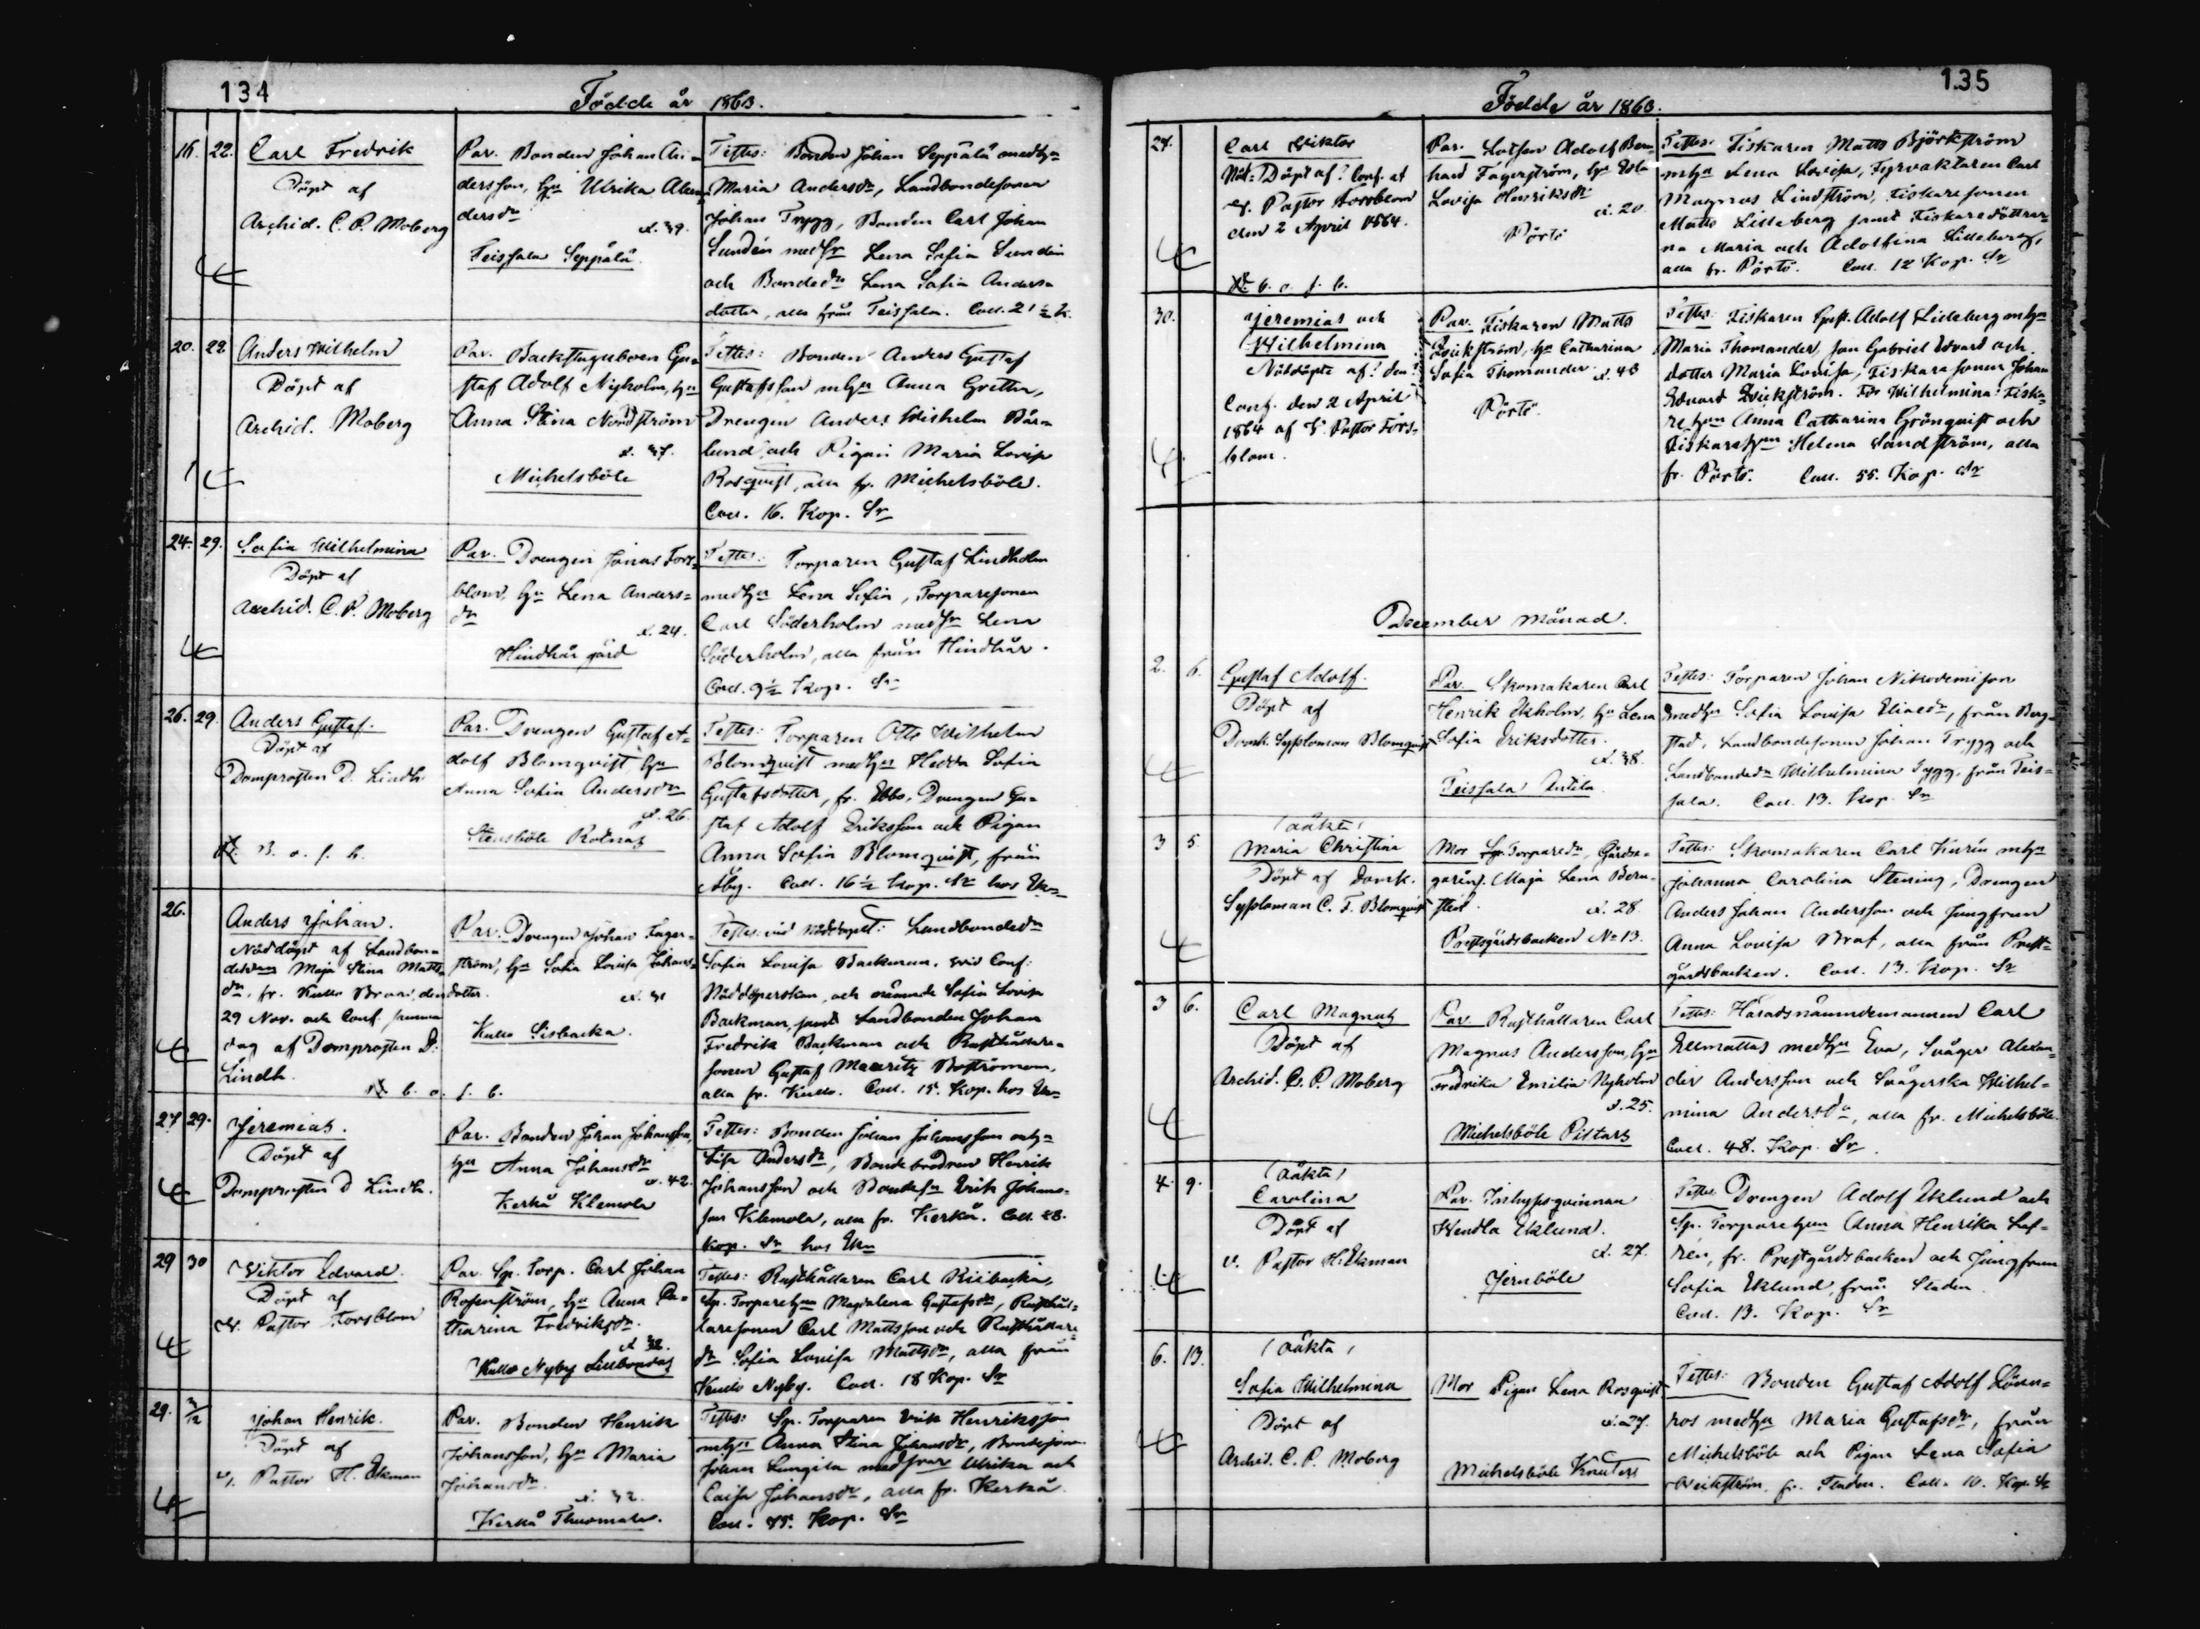 134
Födde år 1863.
16. 22. Carl Fredrik
Döpt af
Archid. C. P. Moberg
Par. Bonden Johan An-
dersson, hu Ulrika
dersdr
Teissala Seppälä
Testes: Bonden Johan Seppälä medhu
Maria Andersdr, Landbondesonen
Johan Trygg, Bonden Carl Johan
Sundén med Lena Sofia Sundén
och Bondedr Lena Sofia Anders-
dotter, alla från Teissala. Coll. 21 ½ k.
20. 22. Anders Wilhelm
Döpt af
Archid. Moberg
Par. Backstuguboen Gu-
staf Adolf Nyholm, hu
Anna Stina Nordström
Michelsböle
Testes: Bonden Anders Gustaf
Gustafsson mhu Anna Greta,
Drengen Anders Wilhelm
lund och Pigan Maria Lovisa
Rosqvist, alla fr. Michelsböle.
Coll. 16. Kop. Sr
24. 29. Sofia Wilhelmina
Döpt af
Archid. C. P. Moberg
Par. Drengen Jonas Fors-
blom, hu Lena Anders-
dr
d. 24.
Hindhår gård
Testes: Torparen Gustaf Lindholm
medhu Lena Sofia, Torparesonen
Carl Söderholm med Lena
Söderholm, alla från Hindhår.
Coll. 9½ Kop. Sr
26. 29. Anders Gustaf.
Döpt af
Domprosten D. Lindh
B. o. f. b.
Par. Drengen Gustaf A-
dolf Blomqvist, hu
Anna Sofia Andersdr
d. 26.
Stensböle Rodnäs
Testes: Torparen Otto Wilhelm
Blomqvist medhu Hedda Sofia
Gustafsdotter, fr. Ebbo, Drengen Gu-
staf Adolf Eriksson och Pigan
Anna Sofia Blomqvist, från
Åby. Coll. 16½ Kop. Sr hos
26. Anders Johan.
Nöddöpt af Landbon-
Maja Stina Matts-
dr, fr. Kullo den
29 Nov. och Conf. samma
dag af Domprosten D.
Lindh.
b. o. f. b.
Par. Drengen Johan Fager-
ström, hu Sofia Lovisa Johans-
dotter.
Kullo
Testes vid nöddopet: Landbondedr
Sofia Lovisa Backman, vid Conf:
Nöddöperskan, och nämnde Sofia Lovisa
Backman, samt Landbonden Johan
Fredrik Backman och Rusthållare-
sonen Gustaf Mauritz Boströmon,
alla fr. Kullo. Coll. 15 Kop. hos
27 29. Jeremias.
Döpt af
Domprosten D Lindh.
Par. Bonden Johan Johansson,
hu Anna Johansdr
d. 42.
Kerkå Klemola
Testes: Bonden Johan Johansson mhu
Lisa Andersdr, Bondebrodren Henrik
Johansson och Erik Johans-
son Klemola, alla fr. Kerkå. Coll.
Kop. Sr hos
29 30 Viktor Edvard.
Döpt af
v. Pastor Forsblom
Par. Sp. Torp. Carl Johan
Rosenström, hu Anna Ca-
tharina Fredriksdr.
Kullo Nyby Lillbondas
Testes: Rusthållaren Carl Riibacka,
Sp. Torparehun Magdalena Gustafsdr, Rusthål-
laresonen Carl Mattsson och Rusthållare-
dr Sofia Lovisa Mattsdr, alla från
Kullo Nyby. Coll. 18 Kop. Sr
29. 2/12 Johan Henrik.
Döpt af
v. Pastor H. Ekman
Par. Bonden Henrik
Johansson, hu Maria
Johansdr.
d. 32.
Kerkå Thuomala.
Testes: Sp. Torparen Erik Henriksson
mhu Anna Stina Johansdr, Bondeson
Johan Lungila med Ulrika och
Caisa Johansdr, alla fr. Kerkå
Coll. Kop. Sr
135
Födde år 1863.
24. Carl Viktor
Nöd-Döpt af? Conf. af
v. Pastor Forsblom
den 2 April 1864.
b. o. f. b.
Par. Lotsen Adolf Bern-
hard Fagerström, hu Eva
Lovisa Henriksdr
d. 20.
Pörtö
Testes: Fiskaren Matts Björkström
mhu Lena Lovisa, Fyrvaktaren Carl
Magnus Lindström, Fiskaresonen
Matts Lilleberg samt Fiskaredöttrar-
na Maria och Adolfina Lilleberg,
alla fr. Pörtö. Coll. 12 Kop. Sr
30. Jeremias och
Wilhelmina
Nöddöpte af? den?
Conf. den 2 April
1864 af v. Pastor Fors-
blom.
Par. Fiskaren Matts
Zwickström, hu Catharina
Sofia Thomander. d. 43
Pörtö.
Testes: Fiskaren Gust. Adolf Lilleberg mhu
Maria Thomander, son Gabriel Edvard och
dotter Maria Lovisa, Fiskaresonen Johan
Edvard Zwickström. För Wilhelmina: Fiska-
rehun Anna Catharina Grönqvist och
Fiskarehun Helena Sandström, alla
fr. Pörtö. Coll. 55. Kop. Sr
December Månad.
2. 6. Gustaf Adolf.
Döpt af
Domk. Sysloman Blomqvist
Par. Skomakaren Carl
Henrik Ekholm, hu Lena
Sofia Eriksdotter.
d. 38.
Teissala Antila.
Testes: Torparen Johan Nikodemison
medhu Sofia Lovisa Eliaedr, från Borg-
stad, Landbondesonen Johan Trygg och
Landbondedr Wilhelmina Trygg, från Teis-
sala. Coll. 13. Kop. Sr
3 5. (oäkta)
Maria Christina
Döpt af Domk.
Sysloman C. F. Blomqvist
Mor Torparedr, Gårds-
Maja Lena Bern-
sted.
d. 28.
Prestgårdsbacken No 13.
Testes: Skomakaren Carl Kurén mhu
Johanna Carolina Stening, Drengen
Anders Johan Andersson och Jungfrun
Anna Lovisa Straf, alla från Prest-
gårdsbacken. Coll. 13. Kop. Sr
3 6. Carl Magnus
Döpt af
Archid. C. P. Moberg
Par. Rusthållaren Carl
Magnus Andersson, hu
Fredrika Emilia Nyholm
d. 25.
Michelsböle Pistars
Testes: Häradsnämndemannen Carl
Ellmattas medhu Eva, Svåger Alexan-
der Andersson och Svägerska Wilhel-
mina Andersdr, alla fr. Michelsböle
Coll. 48. Kop. Sr.
4. 9. (oäkta)
Carolina
Döpt af
v. Pastor H. Ekman
Par. Inhysesqvinnan
Hendla Eklund.
d. 27.
Jernböle
Testes Drengen Adolf Eklund och
Sp. Torparehun Anna Henrika Laf-
rén, fr. Prestgårdsbacken och Jungfrun
Sofia Eklund, från Staden.
Coll. 13. Kop. Sr
6. 13. (oäkta)
Sofia Wilhelmina
Döpt af
Archid. C. P. Moberg
Mor Pigan Lena Rosqvist
d. 27.
Michelsböle Knuters
Testes: Bonden Gustaf Adolf Lönn-
ros medhu Maria Gustafsdr, från
Michelsböle och Pigan Lena Sofia
Weckström, fr. Staden. Coll. 10. Kop. Sr